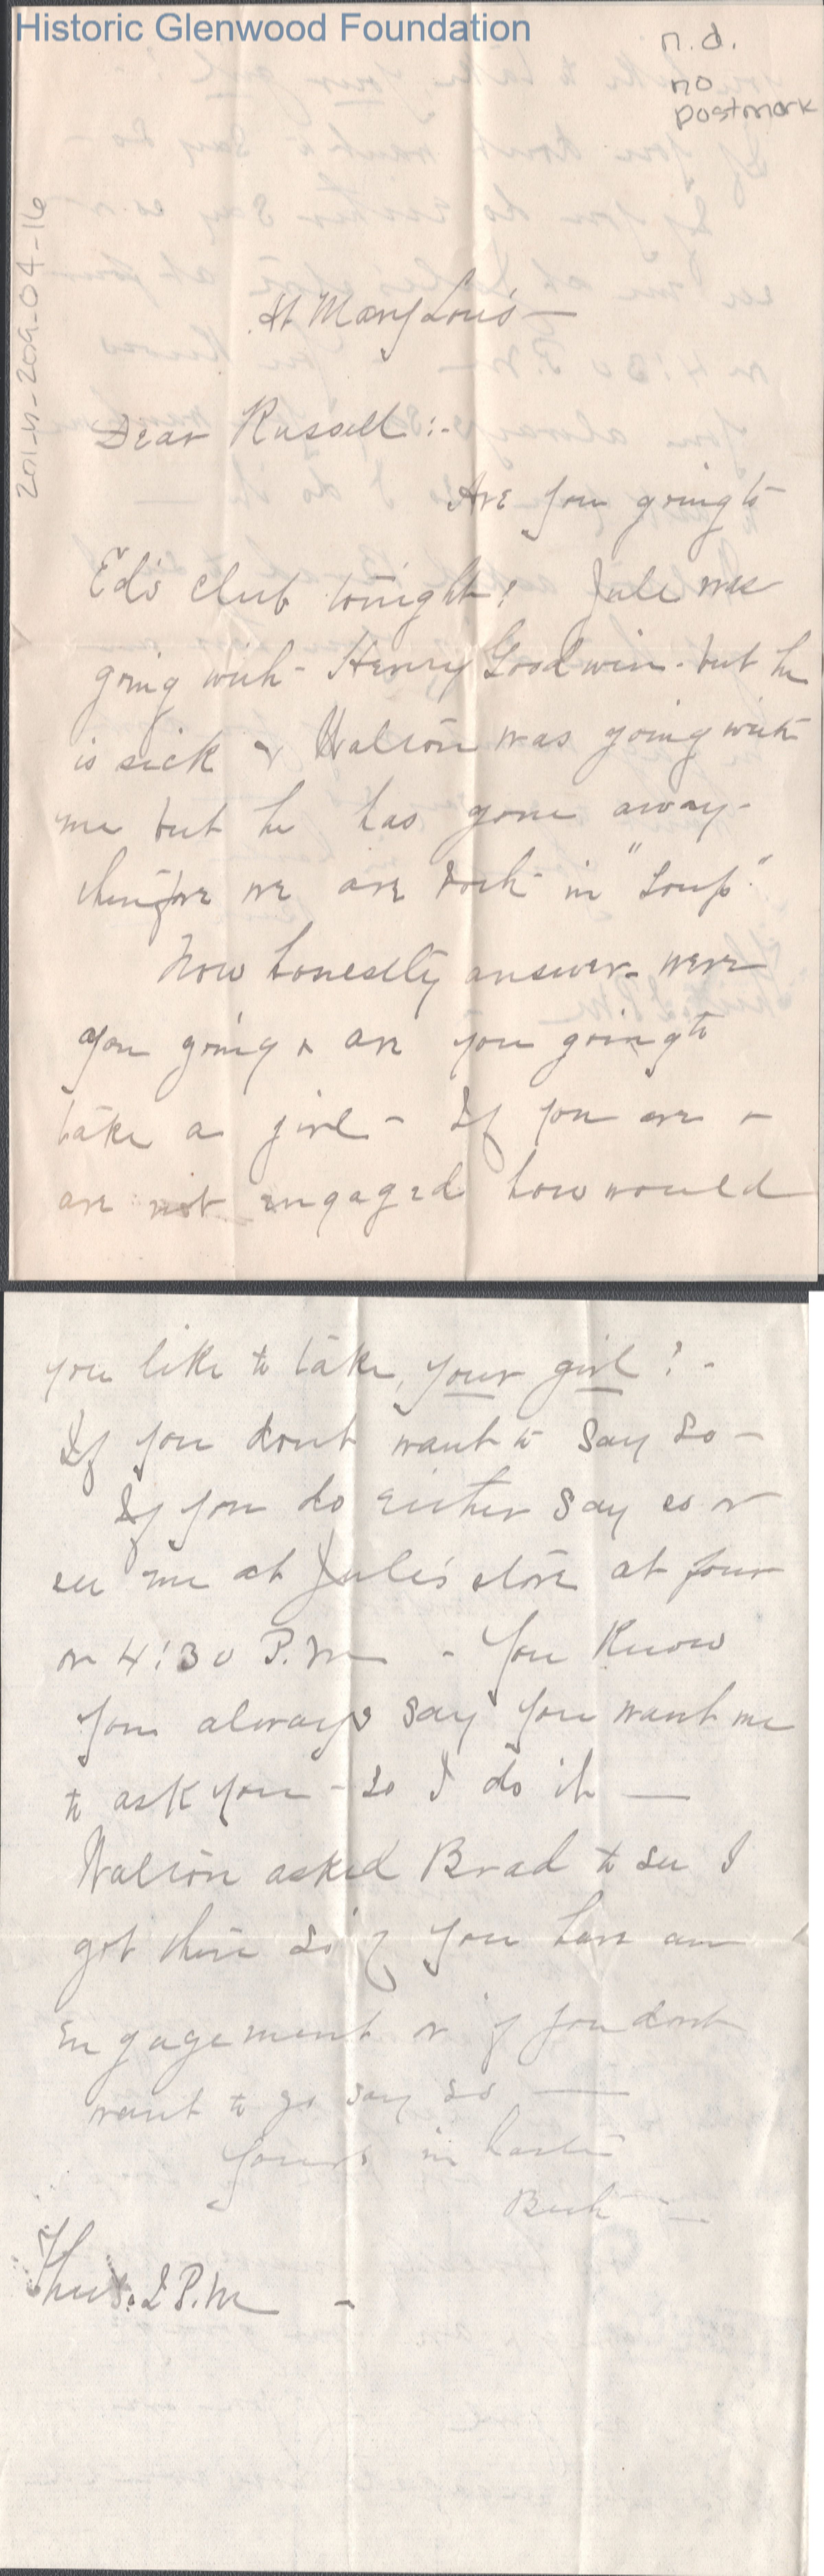 Historic Glenwood Foundation
n.d.
no
postmark
2011-11-209-04-16
At Mary Lou's —
Dear Russell :-
Are you going to
Ed's club tonight? Jule was
going with - Henry Goodwin - but he
is sick & Walton was going with
me but he has gone away -
therefore we are both in "soup."
Now honestly answer - were
you going & are you going to
take a girl - If you are &
are not engaged how would
you like to take, your girl? -
If you dont want to say so -
If you do either say so or
see me at Jule's store at four
or 4:30 P.M - You Know
you always say you want me
to ask you - so I do it —
Walton asked Brad to see I
got there so if you have an
engagement or if you dont
want to go say so —
Yours in haste
Thurs. 2 P.M -